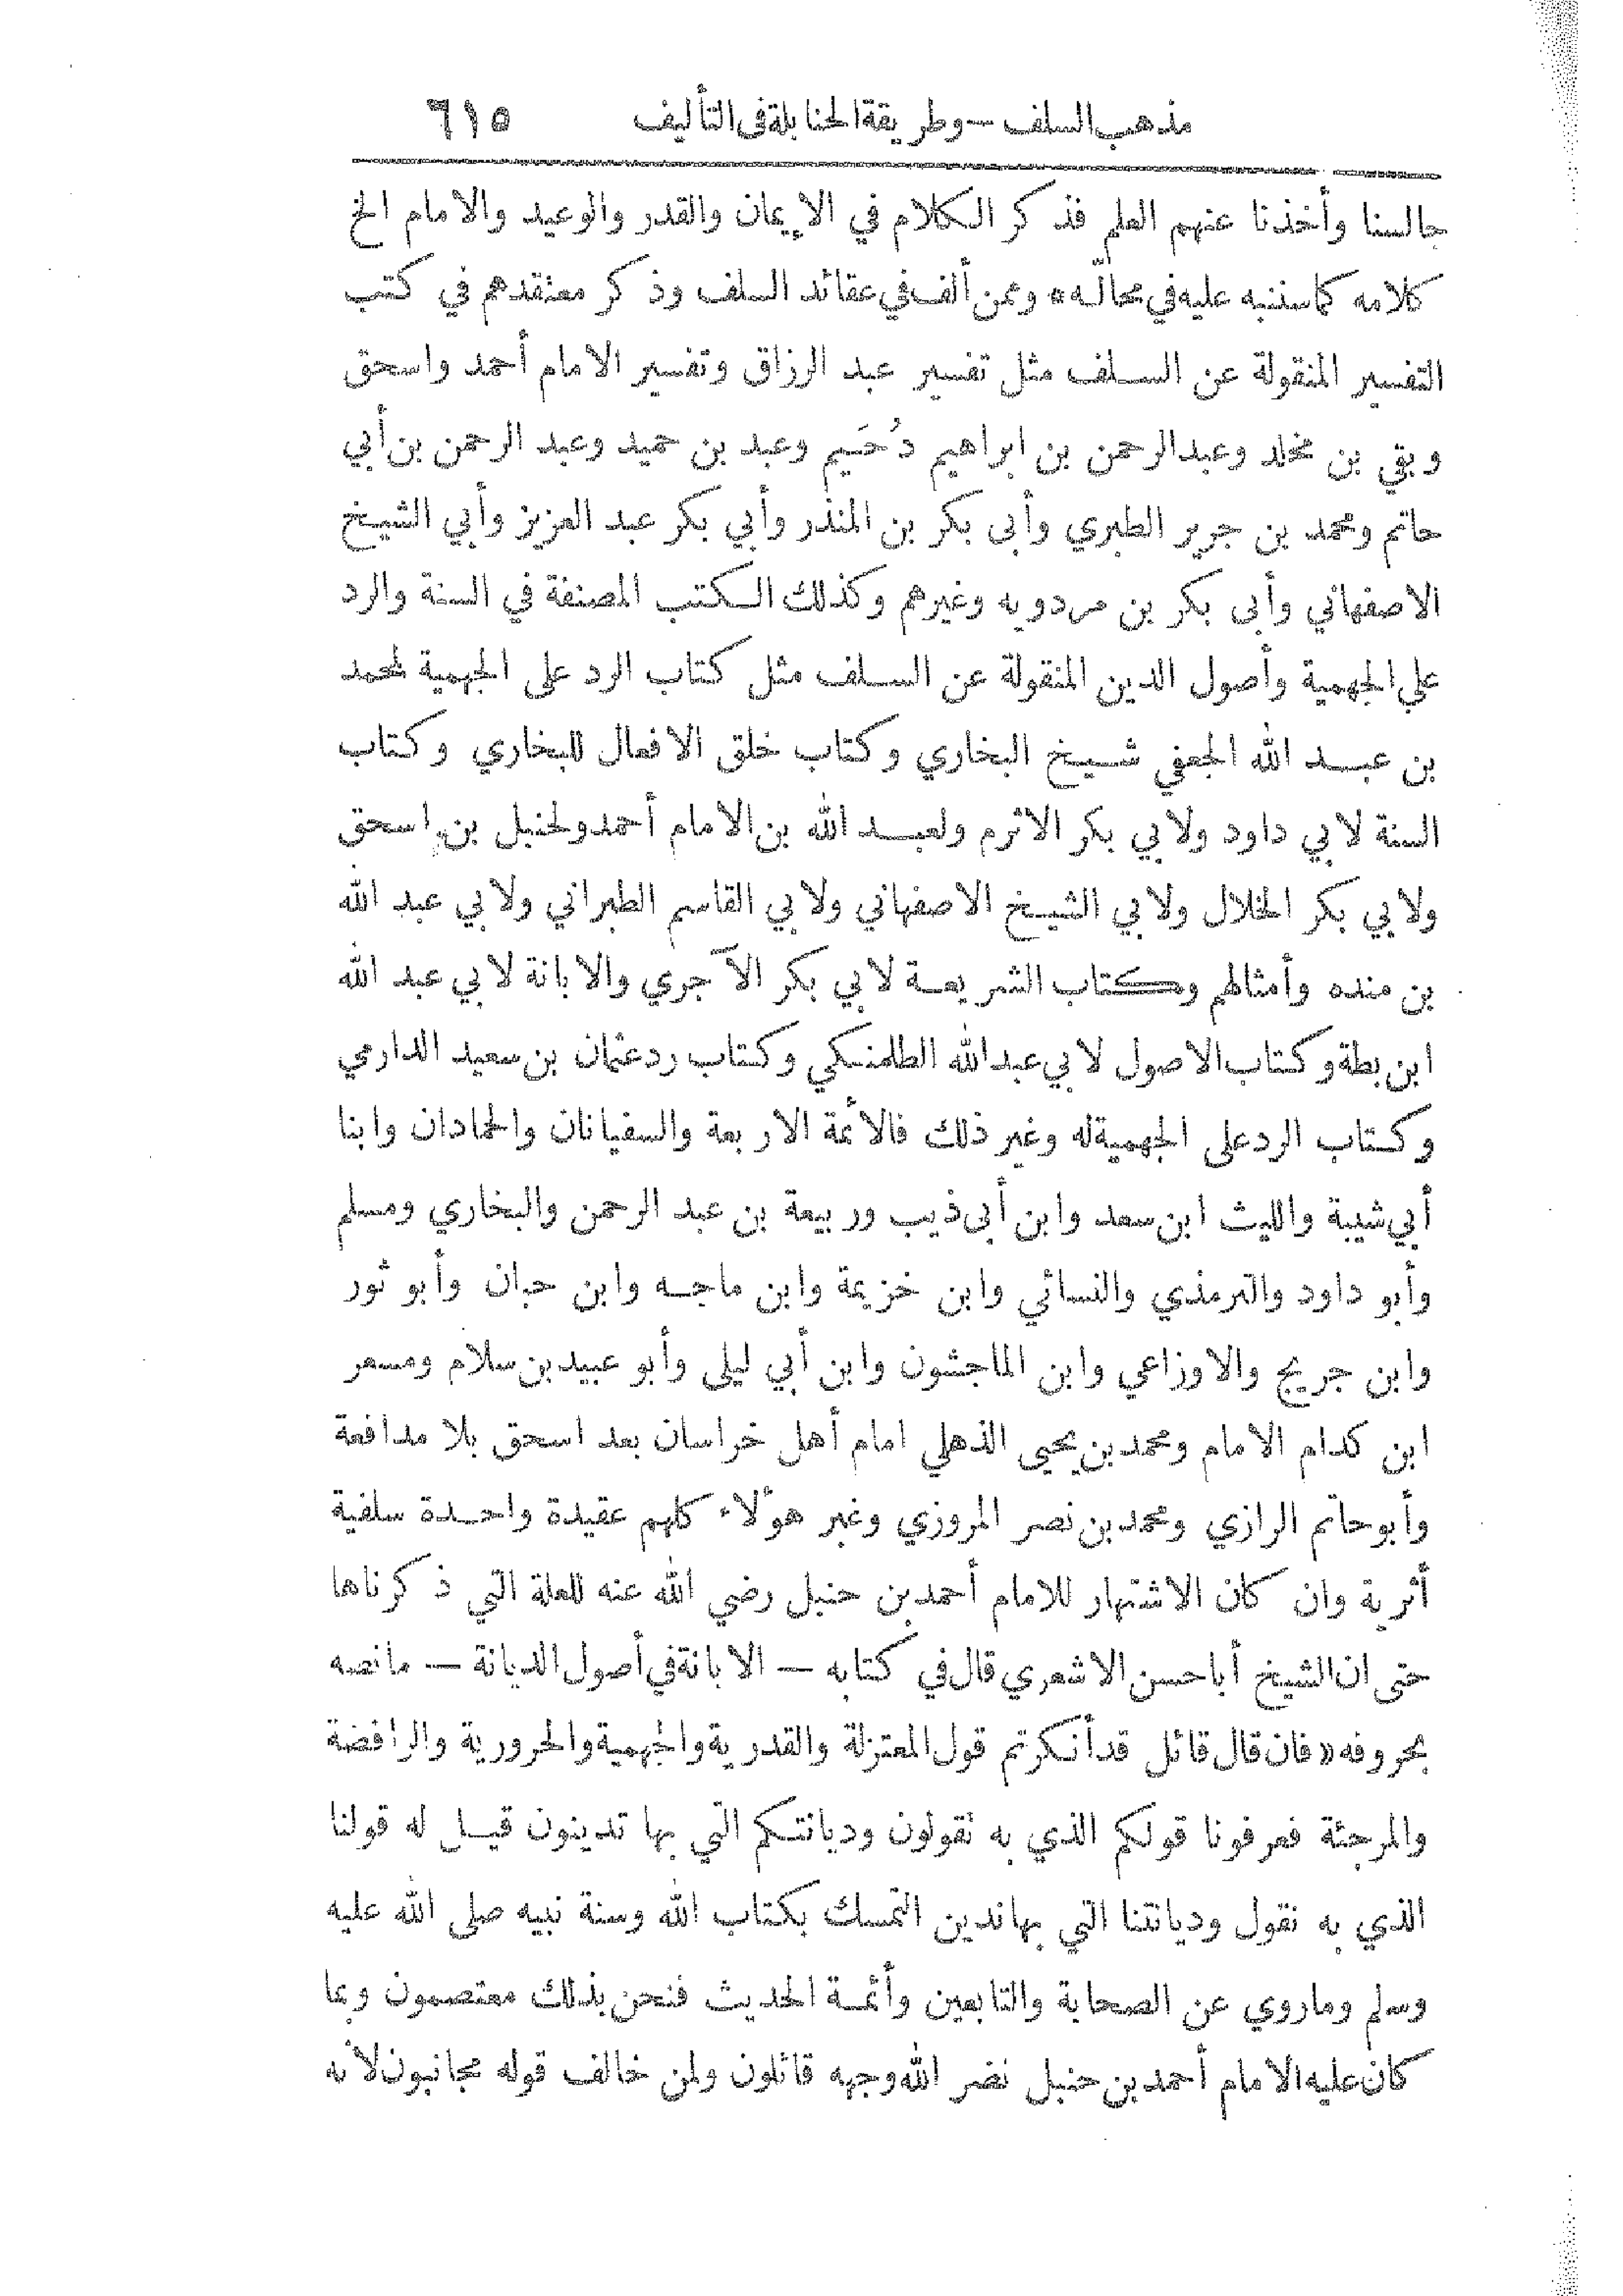 مذهب السلف – وطريقة الحنابلة في التأليف ٦١٥
جالسنا وأخذنا عنهم العلم فذكر الكلام في الإيمان والقدر والوعيد والامام الخ
كلامه كما سننبه عليه في محاله * وممن ألف في عقائد السلف وذكر معتقدهم في كتب
التفسير المنقولة عن السلف مثل تفسير عبد الرزاق وتفسير الامام أحمد واسحق
وبقي بن مخلد وعبد الرحمن بن ابراهيم دُحَيم وعبد بن حميد وعبد الرحمن بن أبي
حاتم ومحمد بن جرير الطبري وأبى بكر بن المنذر وأبي بكر عبد العزيز وأبي الشيخ
الاصفهاني وأبى بكر بن مردويه وغيرهم وكذلك الكتب المصنفة في السنة والرد
على الجهمية وأصول الدين المنقولة عن السلف مثل كتاب الرد على الجهمية لمحمد
بن عبد الله الجعفي شيخ البخاري وكتاب خلق الافعال للبخاري وكتاب
السنة لابي داود ولابي بكر الاثرم ولعبد الله بن الامام أحمد ولحنبل بن اسحق
ولابي بكر الخلال ولابي الشيخ الاصفهاني ولابي القاسم الطبراني ولابي عبد الله
بن منده وأمثالهم وكتاب الشريعة لابي بكر الآجري والابانة لابي عبد الله
ابن بطة وكتاب الاصول لابي عبد الله الطلمنكي وكتاب رد عثمان بن سعيد الدارمي
وكتاب الرد على الجهمية له وغير ذلك فالأئمة الاربعة والسفيانان والحمادان وابنا
أبي شيبة والليث ابن سعد وابن أبى ذيب وربيعة بن عبد الرحمن والبخاري ومسلم
وأبو داود والترمذي والنسائي وابن خزيمة وابن ماجه وابن حبان وأبو ثور
وابن جريج والاوزاعي وابن الماجشون وابن أبي ليلى وأبو عبيد بن سلام ومسعر
ابن كدام الامام ومحمد بن يحيى الذهلي امام أهل خراسان بعد اسحق بلا مدافعة
وأبو حاتم الرازي ومحمد بن نصر المروزي وغير هؤلاء كلهم عقيدة واحدة سلفية
أثرية وان كان الاشتهار للامام أحمد بن حنبل رضي الله عنه للعلة التي ذكرناها
حتى ان الشيخ أبا حسن الاشعري قال في كتابه – الابانة في أصول الديانة – ما نصه
بحروفه « فان قال قائل قد أنكرتم قول المعتزلة والقدرية والجهمية والحرورية والرافضة
والمرجئة فعرفونا قولكم الذي به تقولون وديانتكم التي بها تدينون قيل له قولنا
الذي به نقول وديانتنا التي بها ندين التمسك بكتاب الله وسنة نبيه صلى الله عليه
وسلم وما روي عن الصحابة والتابعين وأئمة الحديث فنحن بذلك معتصمون وبما
كان عليه الامام أحمد بن حنبل نضر الله وجهه قائلون ولمن خالف قوله مجانبون لأنه